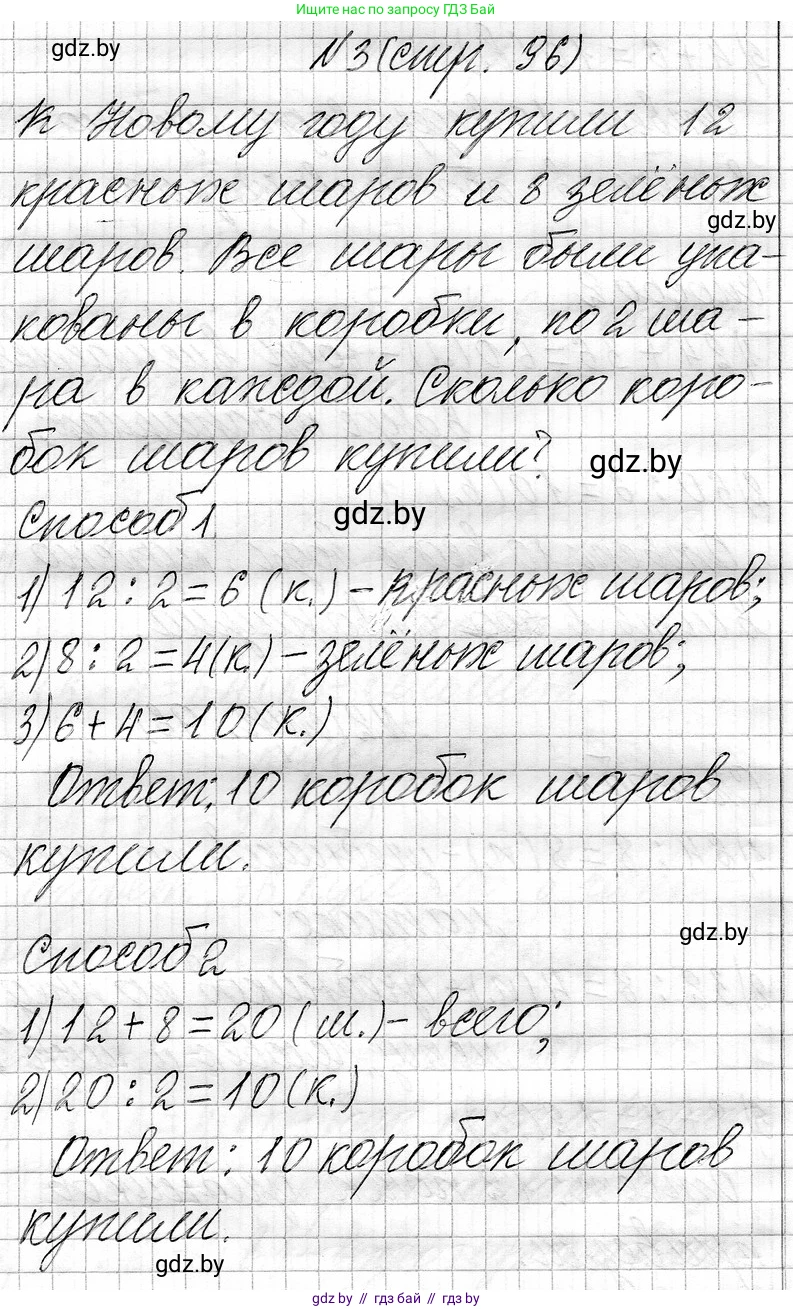 Ищите нас по запросу ГДЗ Бай
gdz.by
N3(стр. 96)
К Новому году купили 12
красных шаров и 8 зелёных
gdz.by
шаров. Все шары были упа-
кованы в коробки, по 2 ша-
ра в каждой. Сколько коро-
бок шаров купили? gdz.by
Способ 1. gdz.by
1) 12 : 2 = 6 (к.) – красных шаров;
2) 8 : 2 = 4(к.) – зелёных шаров;
3) 6 + 4 = 10 (к.)
Ответ: 10 коробок шаров
купили.
gdz.by
Способ 2
1) 12 + 8 = 20 (ш.) – всего;
2) 20 : 2 = 10 (к.)
Ответ: 10 коробок шаров
купили.
gdz.by
gdz.by // гдз бай // gdz.by